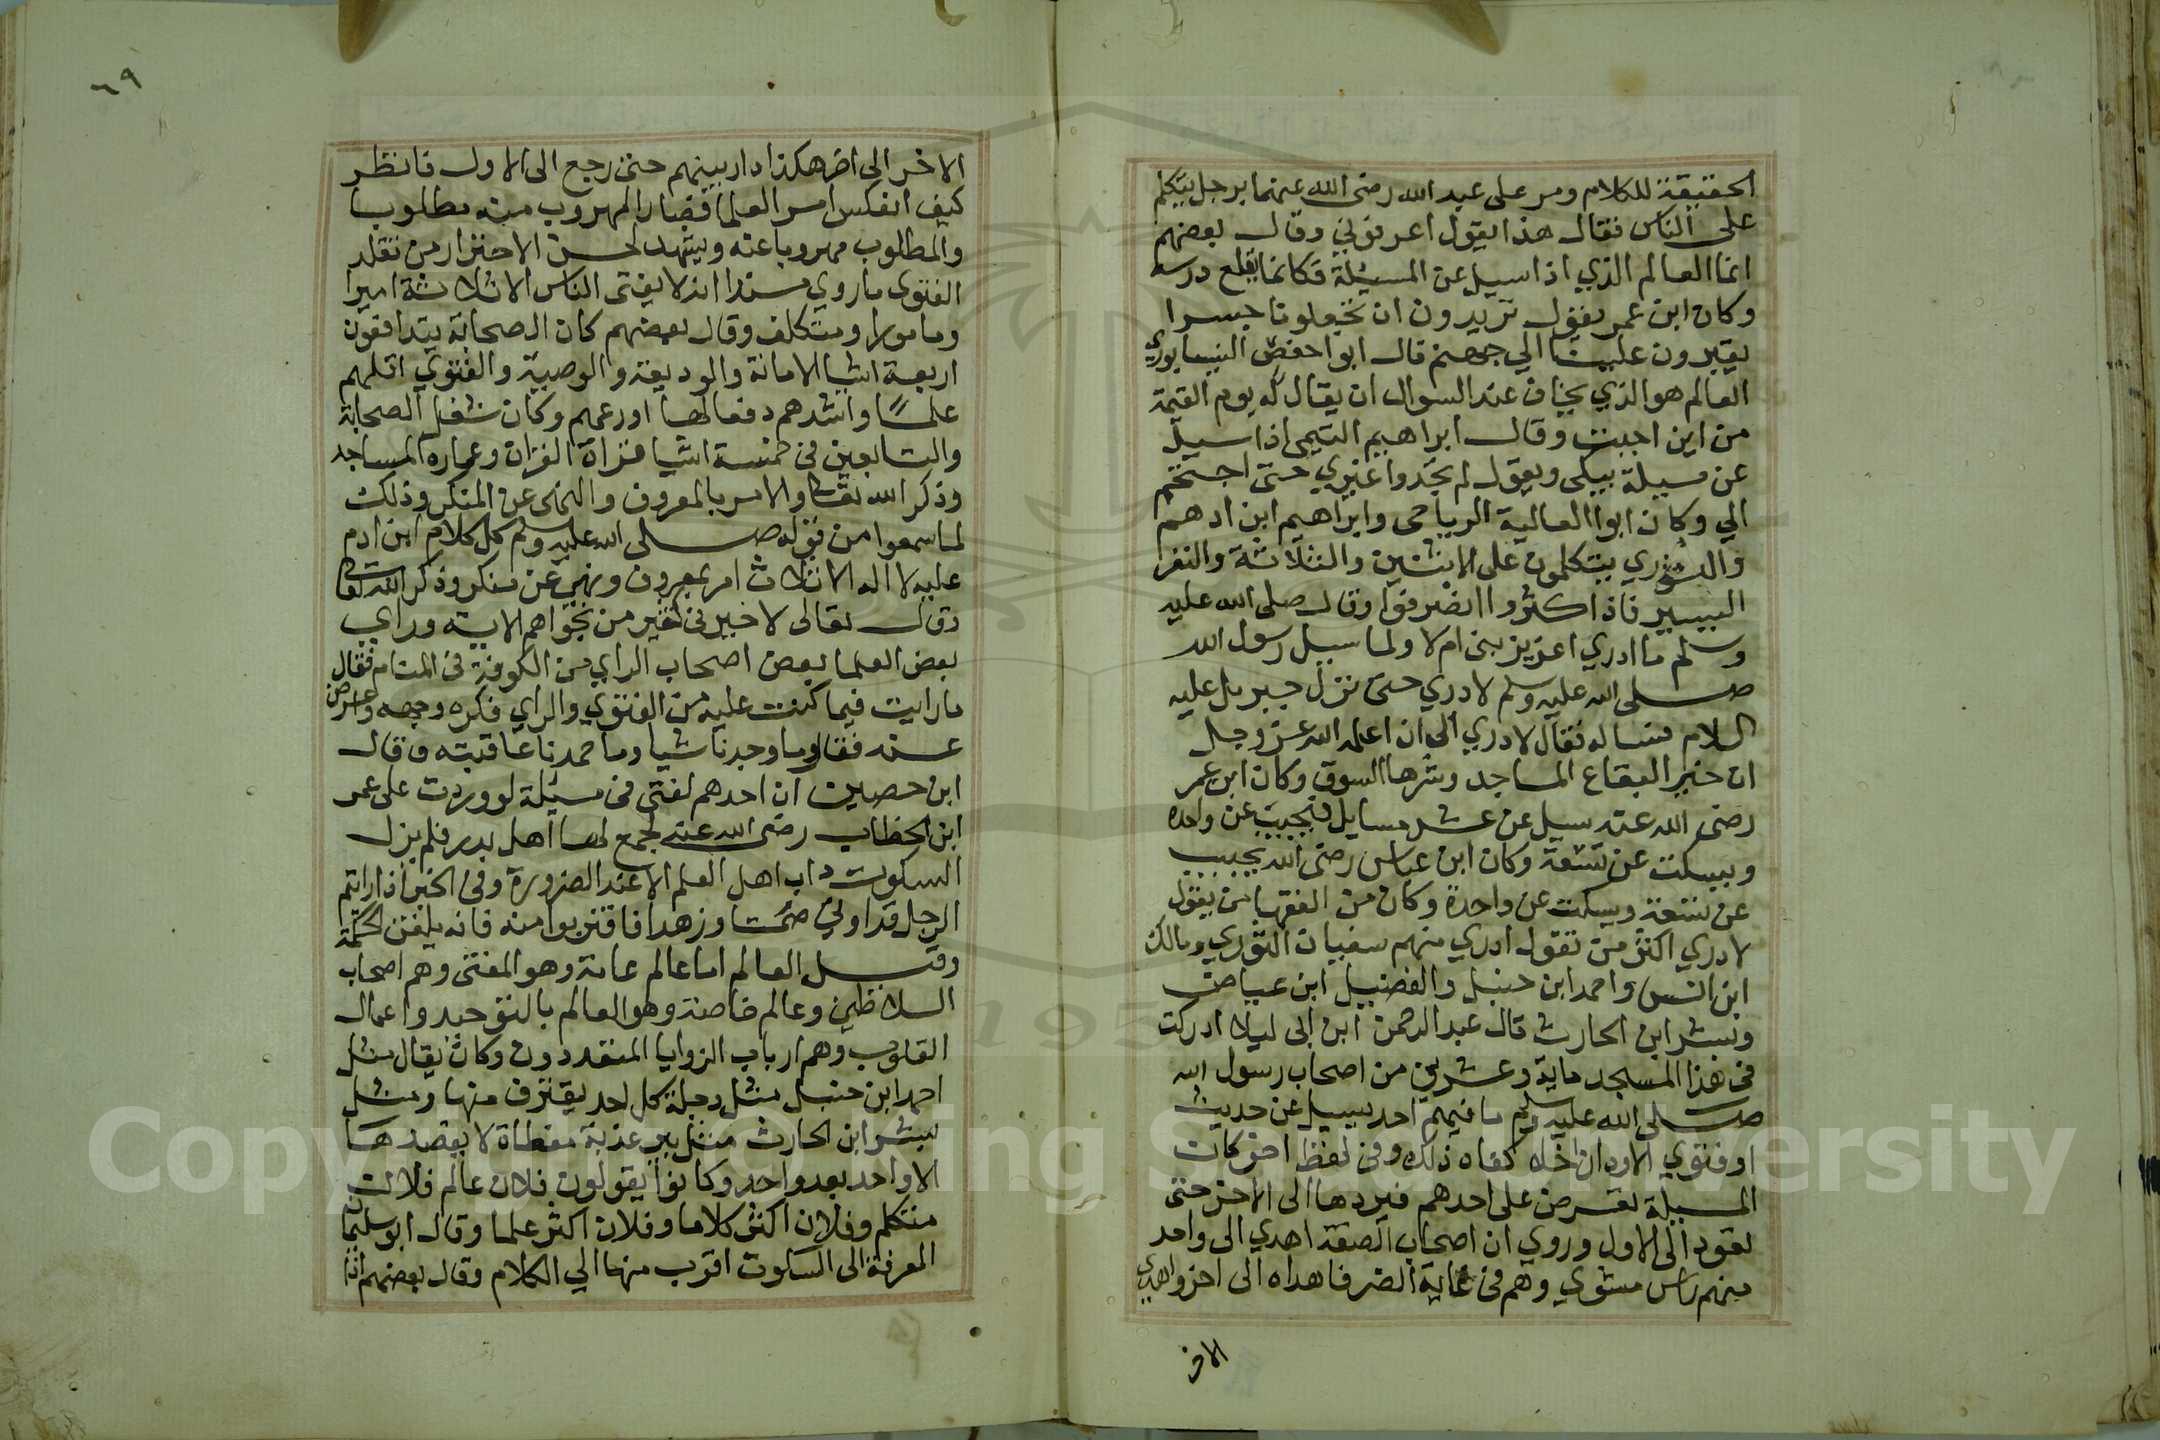 الحقيقة للكلام ومر على عبد الله رضى الله عنهما برجل يتكلم
على الناس فقال هذا يقول اعرفوني وقال بعضهم
انما العالم الذي اذا سيل عن المسيلة فكانما يقلع درسه
وكان ابن عمر يقول تريدون ان تجعلونا جسرا
يعبرون علينا الي جهنم قال ابوا حفص النيسابوري
العالم هو الذي يخاف عند السوال ان يقال له يوم القيمة
من اين اجبت وقال ابراهيم التيمى اذا سيل
عن مسيلة يبكى ويقول لم تجدوا غيري حتى احتجتم
الي وكان ابوا العالية الرياحى وابراهيم ابن ادهم
والثوري يتكلمون على الاثنين والثلاثة والنفر
اليسير فاذا كثروا انصرفوا وقال صلى الله عليه
وسلم ما ادري اعزيز نبى ام لا ولما سيل رسول الله
صلى الله عليه وسلم لا دري حتى نزل جبريل عليه
السلام فساله فقال لا دري الى ان اعلمه الله عز وجل
ان خير البقاع المساجد وشرها السوق وكان ابن عمر
رضى الله عنه سيل عن عشر مسايل فيجيب عن واحده
ويسكت عن تسعة وكان ابن عباس رضى الله يجيب
عن تسعة ويسكت عن واحدة وكان من الفقها من يقول
لا دري اكثر من تقول ادري منهم سفيان الثوري ومالك
ابن انس واحمد ابن حنبل والفضيل ابن عياض
وبشر ابن الحارث قال عبد الرحمن ابن ابى ليلا ادركت
فى هذا المسجد ماية وعشرين من اصحاب رسول الله
صلى الله عليه وسلم ما فيهم احد يسيل عن حديث
او فتوي الا ود ان اخاه كفاه ذلك وفى لفظ اخر كانت
المسيلة تعرض على احدهم فيردها الى الاخر حتى
تعود الى الاول وروي ان اصحاب الصفة اهدي الى واحد
منهم راس مشوي وهم فى غاية الضر فاهداه الى اخر واهدى
الاخر
٦٩
الاخر الى اخر هكذا دار بينهم حتى رجع الى الاول فانظر
كيف انعكس امر العلما فصار المهروب منه مطلوبا
والمطلوب مهروبا عنه ويشهد لحسن الاحتراز من تقلد
الفتوى ما روي مسندا انه لا يفتى الناس الا ثلاثة امير
ومامورا ومتكلف وقال بعضهم كان الصحابة يتدافعون
اربعة اشيا الامانة والوديعة والوصية والفتوي اقلهم
علما واشدهم دفعا لها اورعهم وكان شغل الصحابة
والتابعين فى خمسة اشيا قراة القران وعماره المساجد
وذكر الله تعالى والامر بالمعروف والنهى عن المنكر وذلك
لما سمعوا من قوله صلى الله عليه وسلم كل كلام ابن ادم
عليه لا له الا ثلاث امر بمعروف ونهي عن منكر وذكر الله تعالى
وقال تعالى لا خير فى كثير من نجواهم الاية وراي
بعض العلما بعض اصحاب الراي من الكوفة فى المنام فقال
ما رايت فيما كنت عليه من الفتوي والراي فكره وجهه واعرض
عنه فقال وما وجدنا شيا وما حمدنا عاقبته وقال
ابن حصين ان احدهم لفتى فى مسيلة لو وردت على عمر
ابن الخطاب رضى الله عنه لجمع لها اهل بدر فلم يزل
السكوت داب اهل العلم الا عند الضرورة وفى الخبر اذا رايتم
الرجل قد اولي صمتا وزهدا فاقتربوا منه فانه يلقن الحكمة
وقيل العالم اما عالم عامة وهو المفتى وهم اصحاب
السلاطين وعالم خاصة وهو العالم بالتوحيد واعمال
القلوب وهم ارباب الزوايا المنفردون وكان يقال مثل
احمد ابن حنبل مثل دجلة كل احد يغترف منها ومثل
بشر ابن الحارث مثل بير عذبة مغطاة لا يقصدها
الا واحد بعد واحد وكانوا يقولون فلان عالم فلان
متكلم وفلان اكثر كلاما وفلان اكثر علما وقال ابو سليمان
المعرفة الى السكوت اقرب منها الي الكلام وقال بعضهم اذا